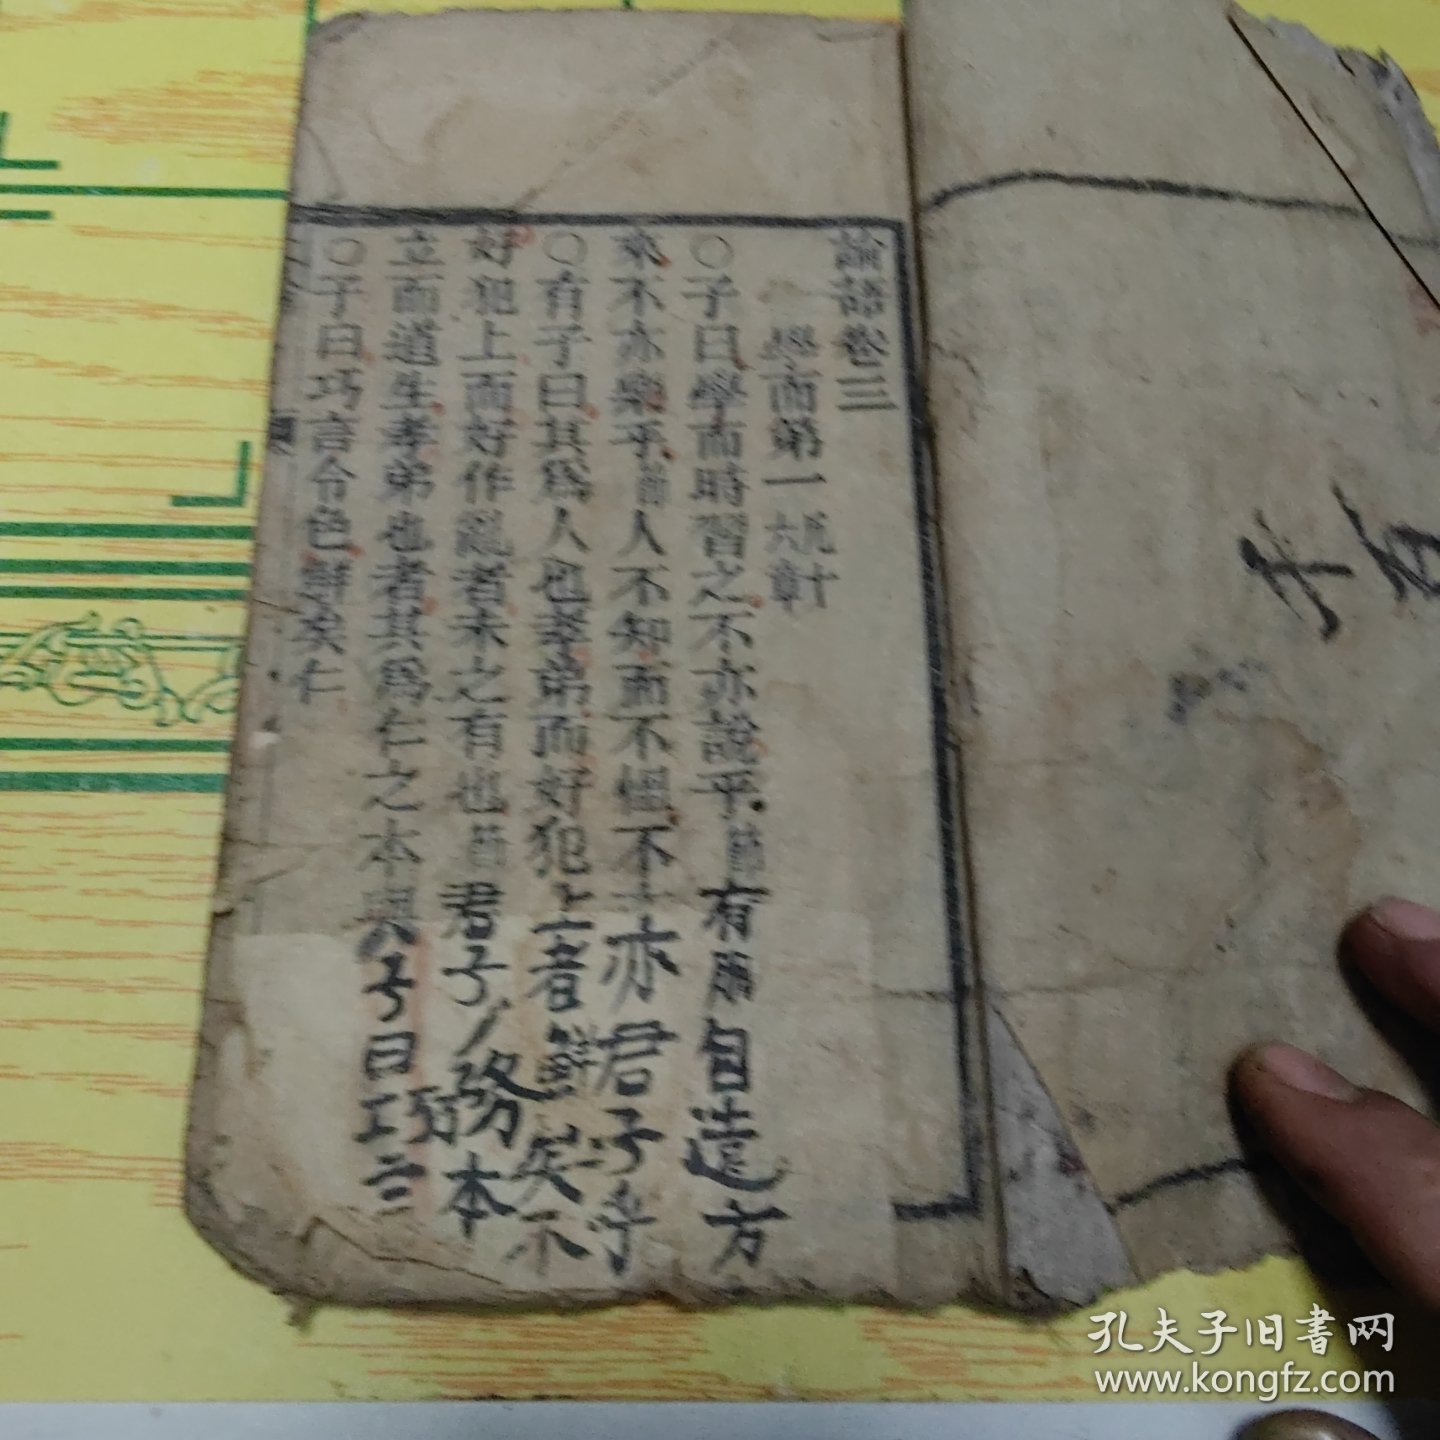 論語卷三
學而第一 凡十六章
○子曰學而時習之不亦說乎節有朋自遠方
來不亦樂乎節人不知而不慍不亦君子乎
○有子曰其爲人也孝弟而好犯上者鮮矣不
好犯上而好作亂者未之有也節君子務本
立而道生孝弟也者其爲仁之本與子曰巧言
○子曰巧言令色鮮矣仁
孔夫子旧书网
www.kongfz.com